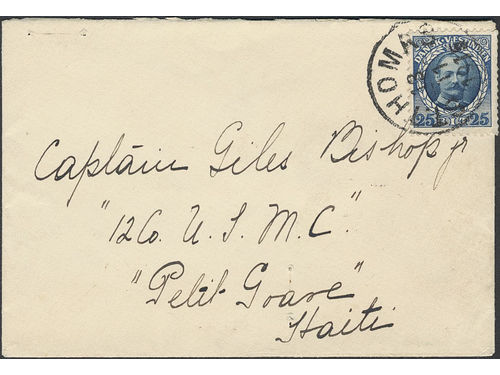 THOMAS
DANSK VESTINDIEN
25 25
Captain Giles Bishop jr
"12 Co. U. S. M. C."
"Petit Goave"
Haiti